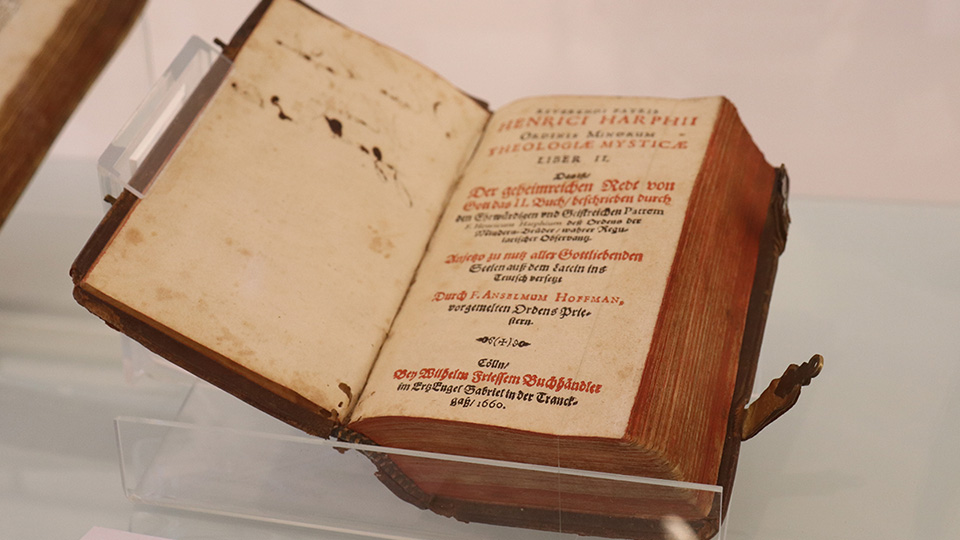 REVERENDI PATRIS
HENRICI HARPHII
ORDINIS MINORUM
THEOLOGIÆ MYSTICÆ
LIBER II.
Das ist/
Der geheimreichen Redt von
Gott das II. Buch/ beschrieben durch
den Ehrwürdigen vnd Geistreichen Patrem
F. Henricum Harphium deß Ordens der
Mindern-Brüder/ wahrer Regu-
larischer Observantz.
Anjetzo zu nutz aller Gottliebenden
Seelen auß dem Latein ins
Teutsch versetzt
Durch F. ANSELMUM HOFFMAN,
vorgemelten Ordens Prie-
stern.
Cölln/
Bey Wilhelm Friessem Buchhändler
im ErtzEngel Gabriel in der Tranck-
gaß/ 1660.